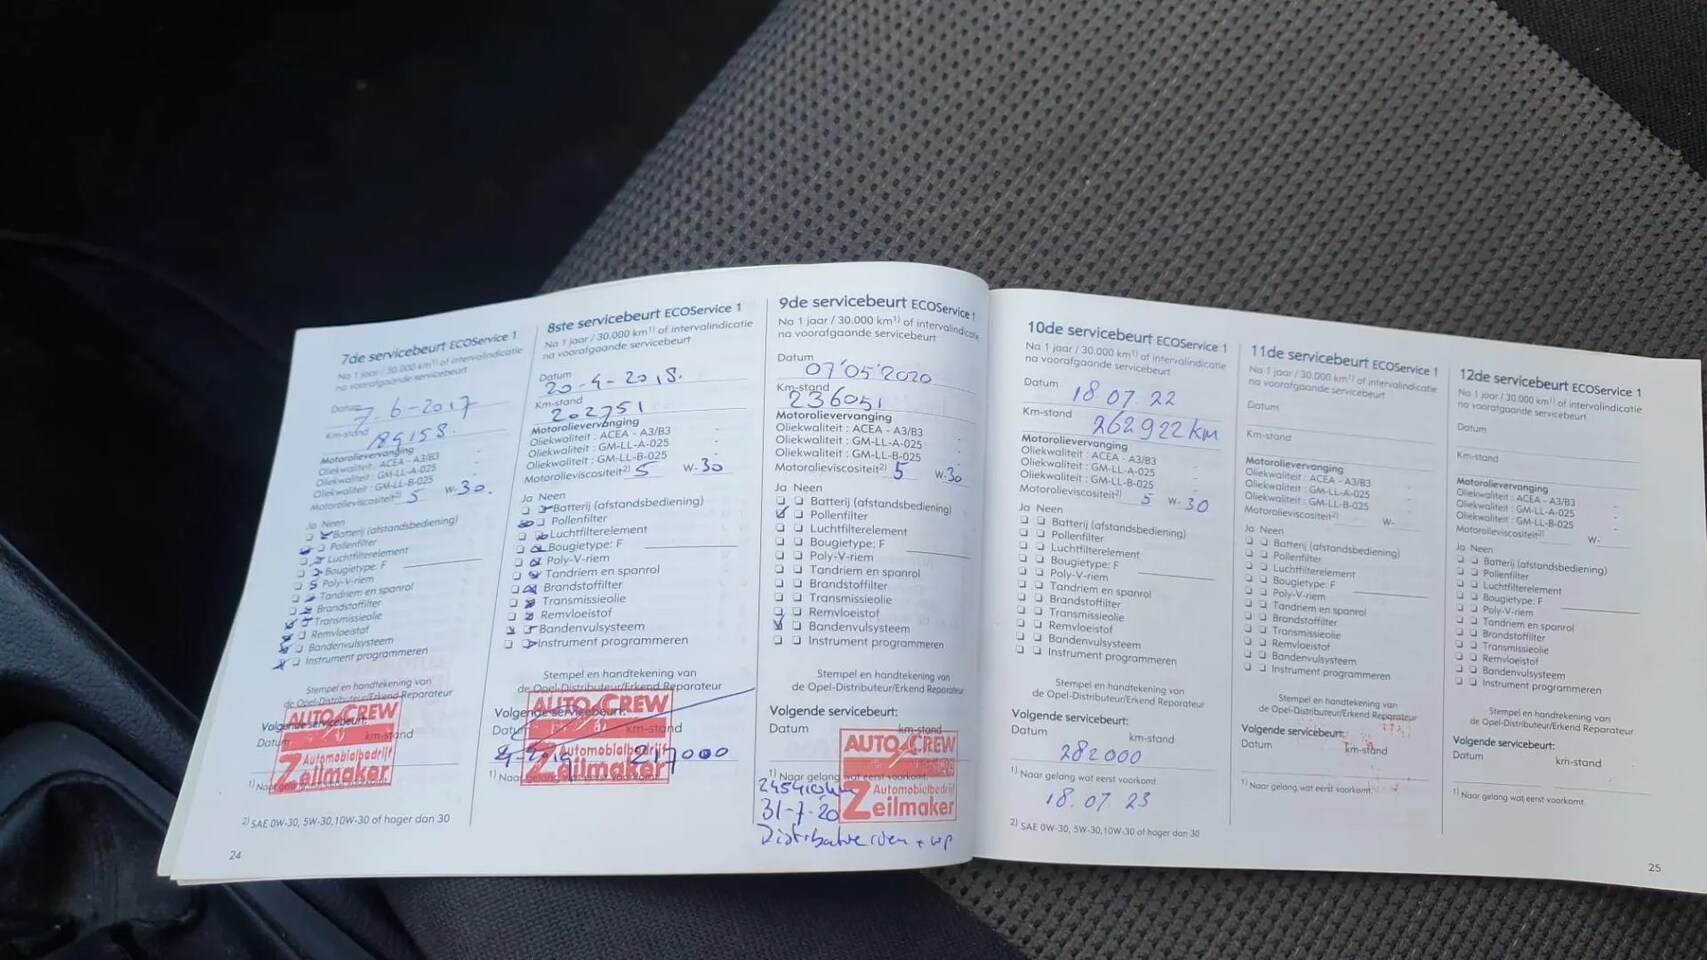 7de servicebeurt ECOService 1
Na 1 jaar / 30.000 km¹⁾ of intervalindicatie
na voorafgaande servicebeurt
Datum
7.6-2017
Km-stand
189158.
Motorolievervanging
Oliekwaliteit : ACEA - A3/B3 -
Oliekwaliteit : GM-LL-A-025 -
Oliekwaliteit : GM-LL-B-025 -
Motorolieviscositeit²⁾ 5 W-30.
Ja Neen
Batterij (afstandsbediening)
Pollenfilter
Luchtfilterelement
Bougietype: F
Poly-V-riem
Tandriem en spanrol
Brandstoffilter
Transmissieolie
Remvloeistof
Bandenvulsysteem
Instrument programmeren
Stempel en handtekening van
de Opel-Distributeur/Erkend Reparateur
AUTO CREW
Volgende servicebeurt:
Datum km-stand
Automobielbedrijf
Zeilmaker
²⁾ SAE 0W-30, 5W-30,10W-30 of hoger dan 30
24
8ste servicebeurt ECOService 1
Na 1 jaar / 30.000 km¹⁾ of intervalindicatie
na voorafgaande servicebeurt
Datum
20-4-2018.
Km-stand
202751
Motorolievervanging
Oliekwaliteit : ACEA - A3/B3 -
Oliekwaliteit : GM-LL-A-025 -
Oliekwaliteit : GM-LL-B-025 -
Motorolieviscositeit²⁾ 5 W-30
Ja Neen
Batterij (afstandsbediening)
Pollenfilter
Luchtfilterelement
Bougietype: F
Poly-V-riem
Tandriem en spanrol
Brandstoffilter
Transmissieolie
Remvloeistof
Bandenvulsysteem
Instrument programmeren
Stempel en handtekening van
de Opel-Distributeur/Erkend Reparateur
AUTO CREW
Volgende servicebeurt:
Datum km-stand
217000
Automobielbedrijf
Zeilmaker
9de servicebeurt ECOService 1
Na 1 jaar / 30.000 km¹⁾ of intervalindicatie
na voorafgaande servicebeurt
Datum
07'05'2020
Km-stand
236051
Motorolievervanging
Oliekwaliteit : ACEA - A3/B3 -
Oliekwaliteit : GM-LL-A-025 -
Oliekwaliteit : GM-LL-B-025 -
Motorolieviscositeit²⁾ 5 W-30
Ja Neen
Batterij (afstandsbediening)
Pollenfilter
Luchtfilterelement
Bougietype: F
Poly-V-riem
Tandriem en spanrol
Brandstoffilter
Transmissieolie
Remvloeistof
Bandenvulsysteem
Instrument programmeren
Stempel en handtekening van
de Opel-Distributeur/Erkend Reparateur
Volgende servicebeurt:
Datum km-stand
AUTO CREW
¹⁾ Naar gelang wat eerst voorkomt.
Automobielbedrijf
Zeilmaker
31-7-20
+ wp
10de servicebeurt ECOService 1
Na 1 jaar / 30.000 km¹⁾ of intervalindicatie
na voorafgaande servicebeurt
Datum 18.07.22
Km-stand 262922 km
Motorolievervanging
Oliekwaliteit : ACEA - A3/B3 -
Oliekwaliteit : GM-LL-A-025 -
Oliekwaliteit : GM-LL-B-025 -
Motorolieviscositeit²⁾ 5 W-30
Ja Neen
Batterij (afstandsbediening)
Pollenfilter
Luchtfilterelement
Bougietype: F
Poly-V-riem
Tandriem en spanrol
Brandstoffilter
Transmissieolie
Remvloeistof
Bandenvulsysteem
Instrument programmeren
Stempel en handtekening van
de Opel-Distributeur/Erkend Reparateur
Volgende servicebeurt:
Datum km-stand
282000
¹⁾ Naar gelang wat eerst voorkomt.
18.07.23
²⁾ SAE 0W-30, 5W-30,10W-30 of hoger dan 30
11de servicebeurt ECOService 1
Na 1 jaar / 30.000 km¹⁾ of intervalindicatie
na voorafgaande servicebeurt
Datum
Km-stand
Motorolievervanging
Oliekwaliteit : ACEA - A3/B3 -
Oliekwaliteit : GM-LL-A-025 -
Oliekwaliteit : GM-LL-B-025 -
Motorolieviscositeit²⁾ W-
Ja Neen
Batterij (afstandsbediening)
Pollenfilter
Luchtfilterelement
Bougietype: F
Poly-V-riem
Tandriem en spanrol
Brandstoffilter
Transmissieolie
Remvloeistof
Bandenvulsysteem
Instrument programmeren
Stempel en handtekening van
de Opel-Distributeur/Erkend Reparateur
Volgende servicebeurt:
Datum km-stand
¹⁾ Naar gelang wat eerst voorkomt.
12de servicebeurt ECOService 1
Na 1 jaar / 30.000 km¹⁾ of intervalindicatie
na voorafgaande servicebeurt
Datum
Km-stand
Motorolievervanging
Oliekwaliteit : ACEA - A3/B3 -
Oliekwaliteit : GM-LL-A-025 -
Oliekwaliteit : GM-LL-B-025 -
Motorolieviscositeit²⁾ W-
Ja Neen
Batterij (afstandsbediening)
Pollenfilter
Luchtfilterelement
Bougietype: F
Poly-V-riem
Tandriem en spanrol
Brandstoffilter
Transmissieolie
Remvloeistof
Bandenvulsysteem
Instrument programmeren
Stempel en handtekening van
de Opel-Distributeur/Erkend Reparateur
Volgende servicebeurt:
Datum km-stand
¹⁾ Naar gelang wat eerst voorkomt.
25